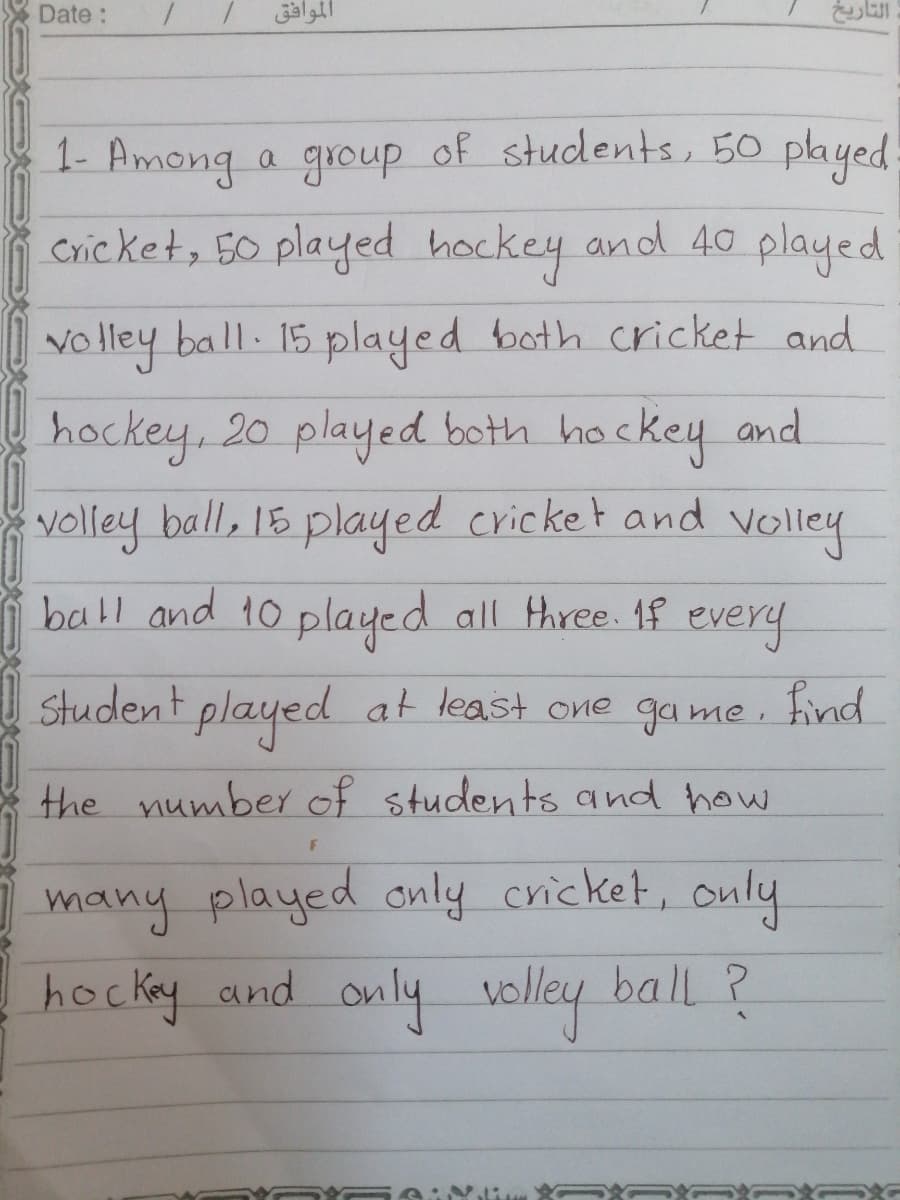 Date : / / الموافق / / التاريخ :
1- Among a group of students, 50 played
cricket, 50 played hockey and 40 played
volley ball. 15 played both cricket and
hockey, 20 played both hockey and
volley ball, 15 played cricket and volley
ball and 10 played all three. If every
student played at least one game, find
the number of students and how
many played only cricket, only
hockey and only volley ball ?